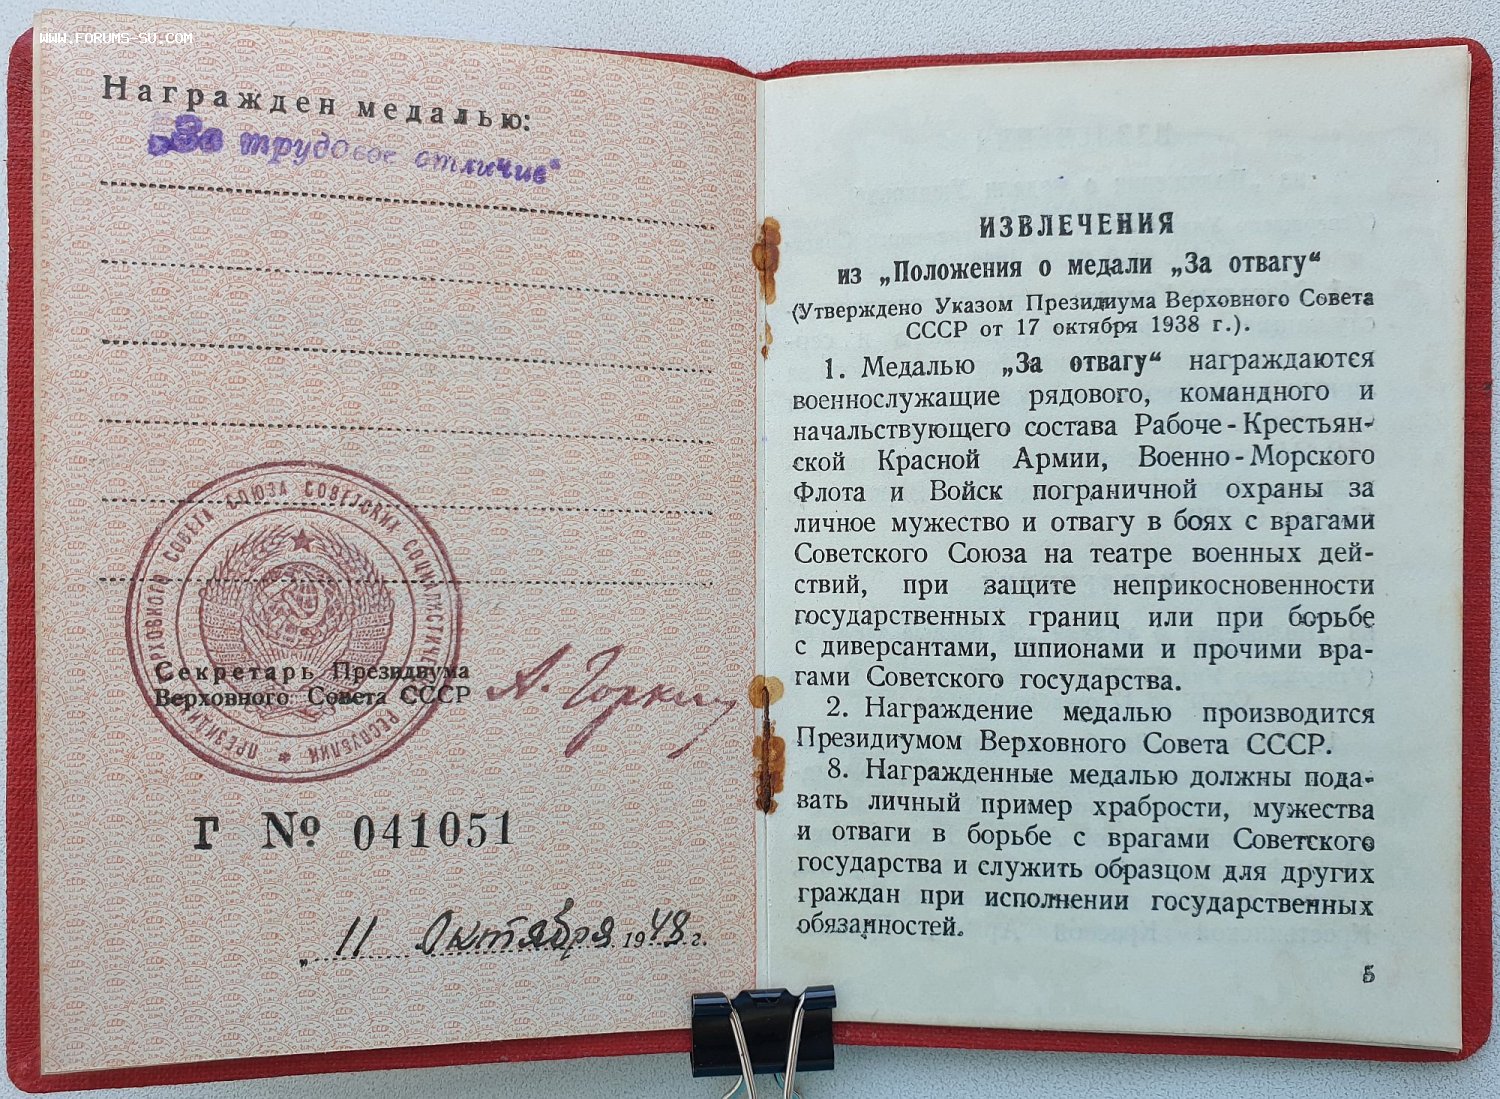 WWW.FORUMS-SU.COM
Награжден медалью:
„За трудовое отличие“
ПРЕЗИДИУМ ВЕРХОВНОГО СОВЕТА СОЮЗА СОВЕТСКИХ СОЦИАЛИСТИЧЕСКИХ РЕСПУБЛИК
Секретарь Президиума
Верховного Совета СССР
А. Горкин
Г № 041051
„ 11 Октября 1948 г.
ИЗВЛЕЧЕНИЯ
из „Положения о медали „За отвагу“
(Утверждено Указом Президиума Верховного Совета
СССР от 17 октября 1938 г.).
1. Медалью „За отвагу“ награждаются
военнослужащие рядового, командного и
начальствующего состава Рабоче-Крестьян-
ской Красной Армии, Военно-Морского
Флота и Войск пограничной охраны за
личное мужество и отвагу в боях с врагами
Советского Союза на театре военных дей-
ствий, при защите неприкосновенности
государственных границ или при борьбе
с диверсантами, шпионами и прочими вра-
гами Советского государства.
2. Награждение медалью производится
Президиумом Верховного Совета СССР.
8. Награжденные медалью должны пода-
вать личный пример храбрости, мужества
и отваги в борьбе с врагами Советского
государства и служить образцом для других
граждан при исполнении государственных
обязанностей.
5